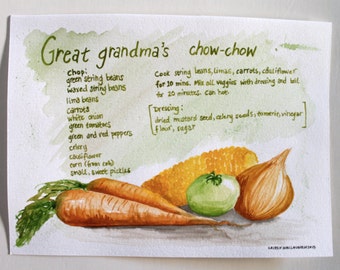 Great grandma's chow-chow
Chop:
green string beans
waxed string beans
lima beans
carrots
white onion
green tomatoes
green and red peppers
celery
cauliflower
corn (from cob)
small, sweet pickles
Cook string beans, limas, carrots, cauliflower
for 10 mins. Mix all veggies with dressing and boil
for 20 minutes. Can hot.
Dressing:
dried mustard seed, celery seeds, turmeric, vinegar
flour, sugar